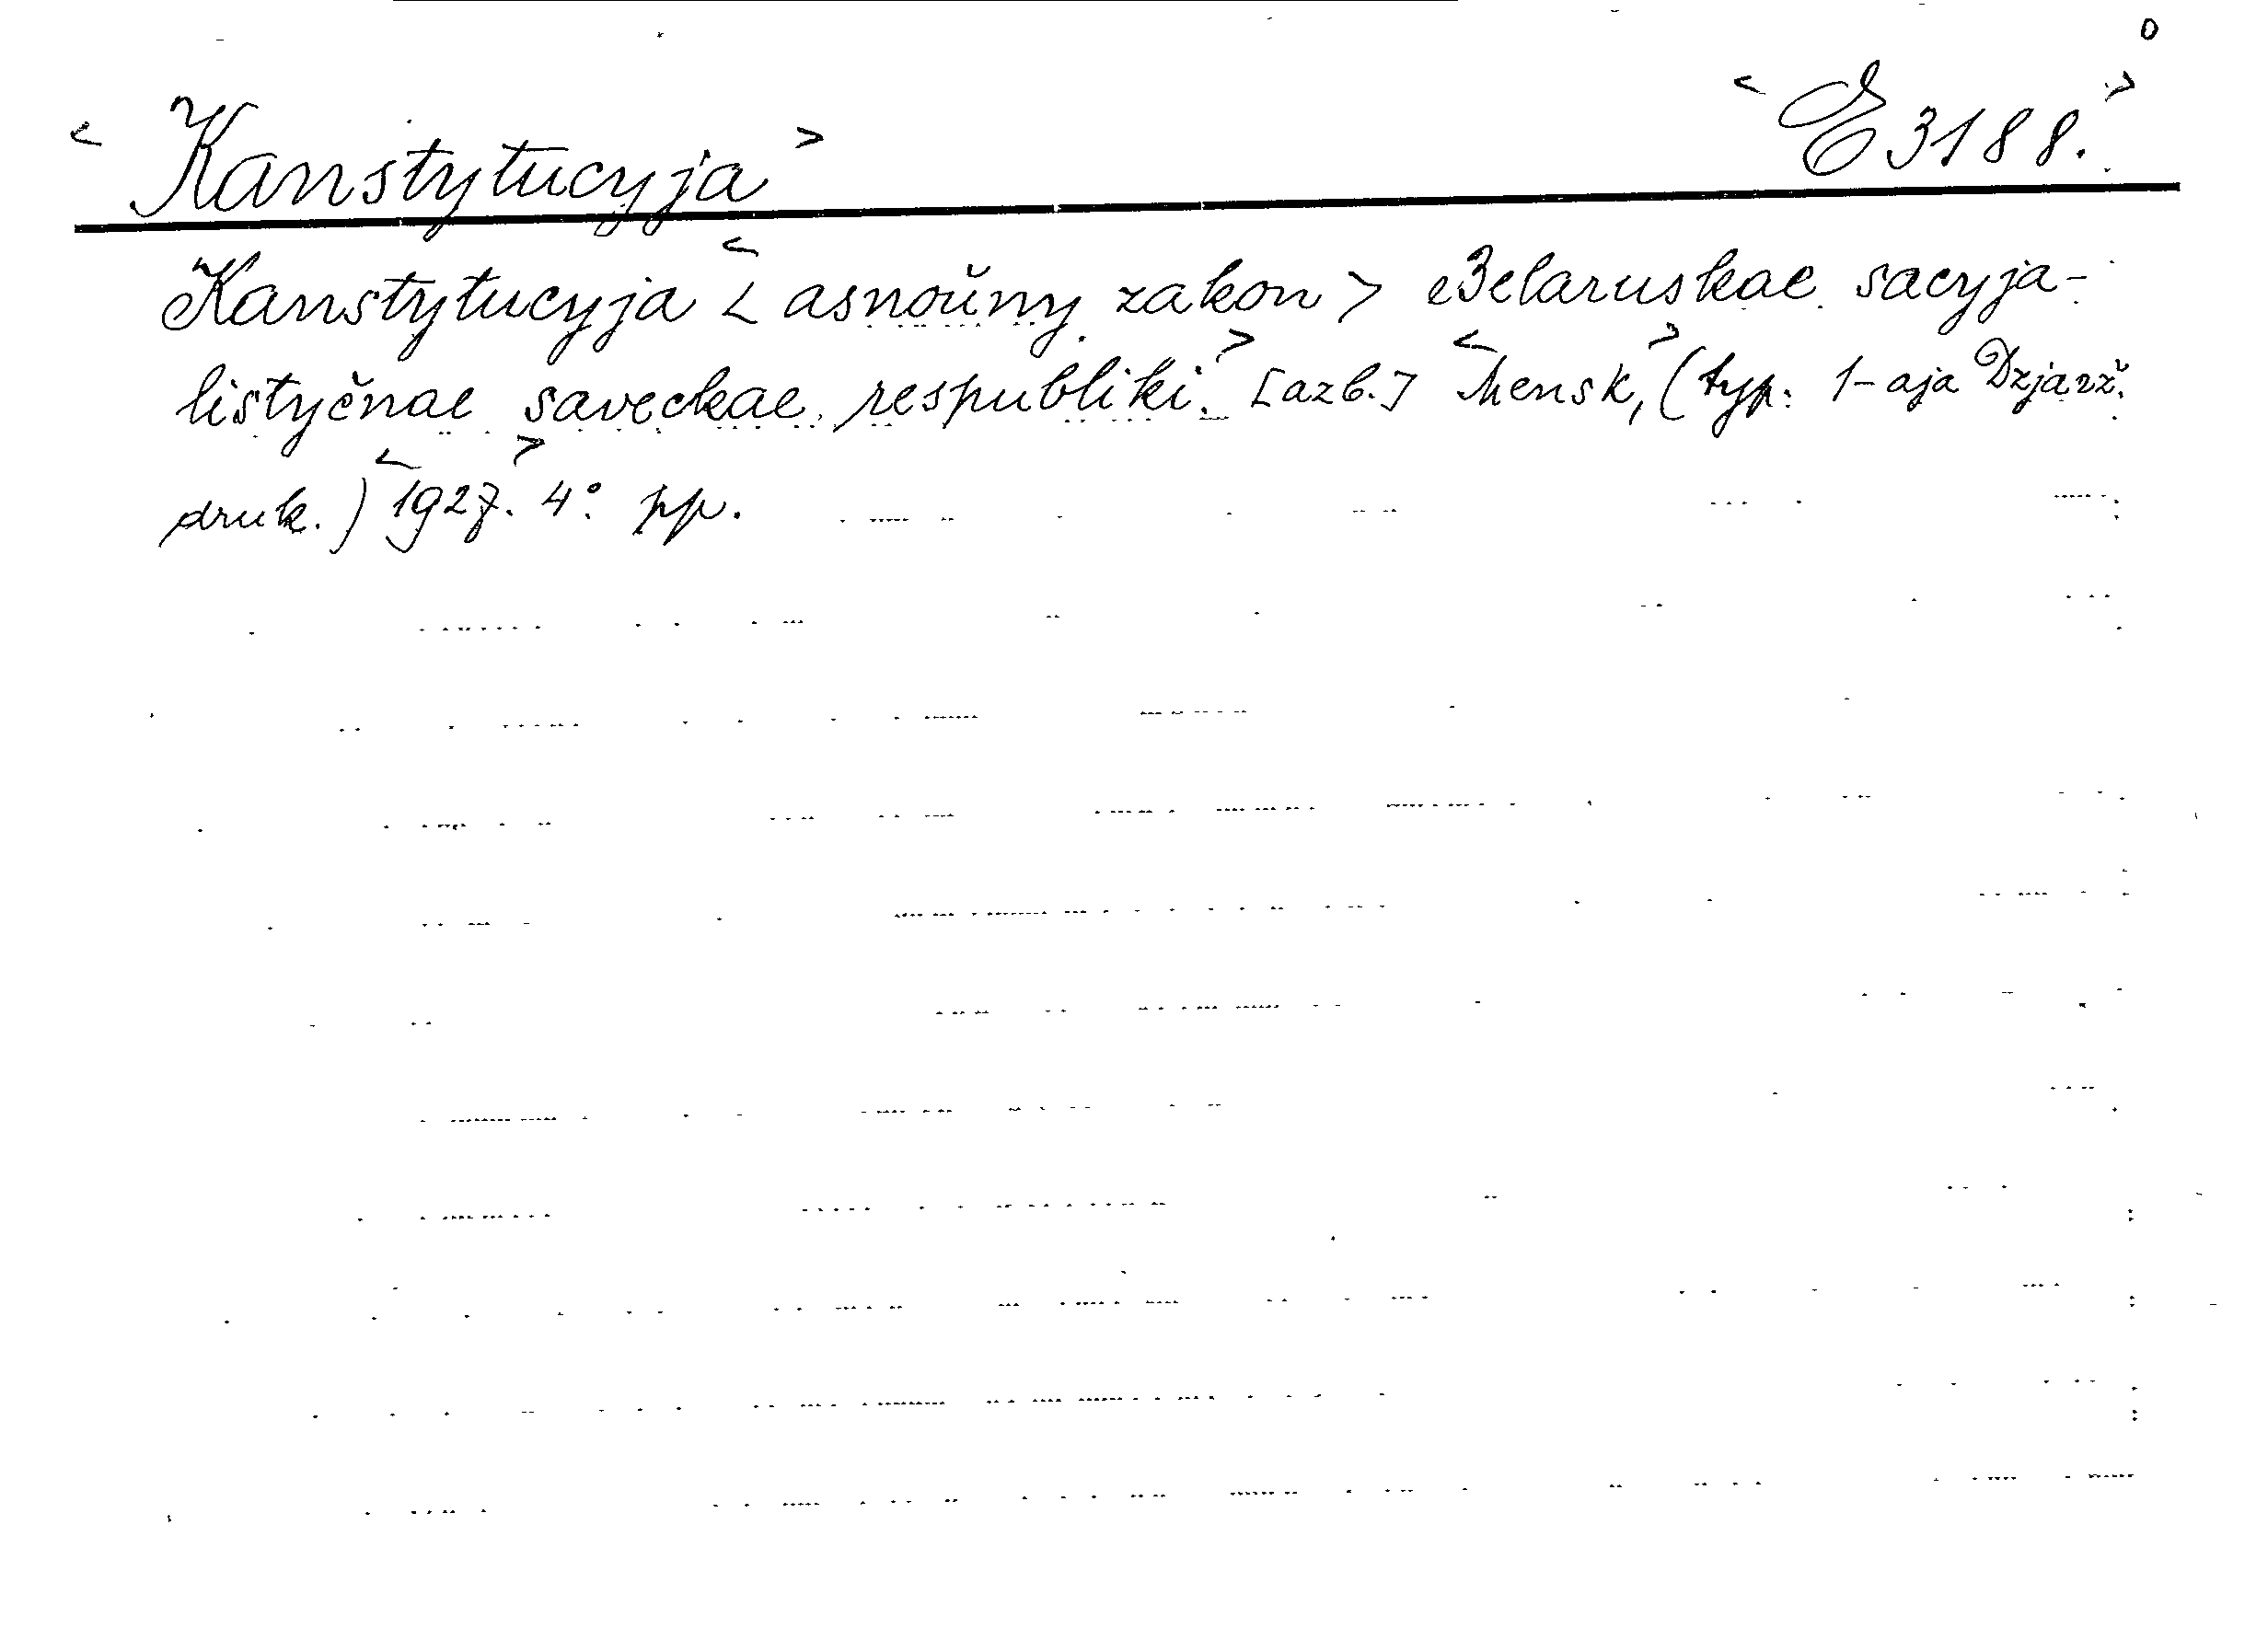 < Kanstytucyja > < E 3188. >
Kanstytucyja < asnoŭny zakon > Belaruskae sacyja-
listyčnae saveckae respubliki. [azb.] Mensk, (typ. 1-aja Dzjarž.
druk.) 1927. 4° pp.